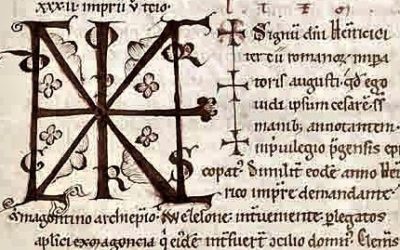 xxxii imprii ũ tcio.
Signũ dñi Heinrici
tercii romanoꝝ impa
toris augusti. qđ ego
uidi ipsum cesarẽ
manib; annotantem
puilegio pgensis epi
copat. Similit eodẽ anno Hein
rico impre demandante
magontino archiepio Wezelone. interueniente. plegatos
aplici exmagoncia qi eidẽ intfuert cclio domi Clemtis